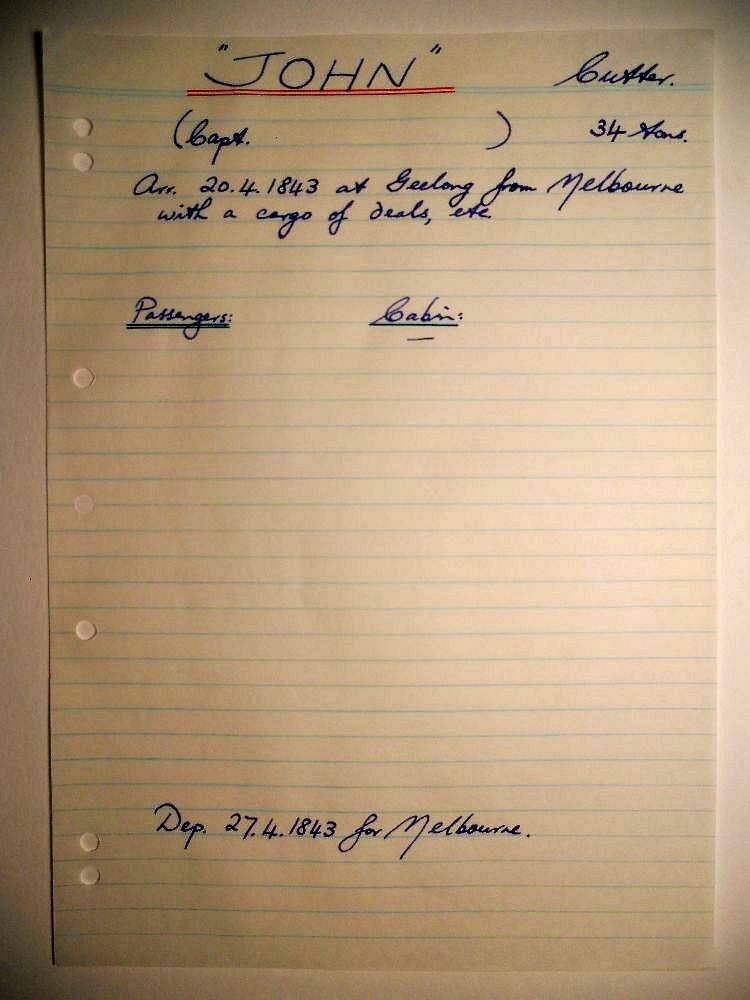 "JOHN" Cutter.
(Capt. ) 34 tons.
Arr. 20.4.1843 at Geelong from Melbourne
with a cargo of deals, etc.
Passengers: Cabin:
Dep. 27.4.1843 for Melbourne.